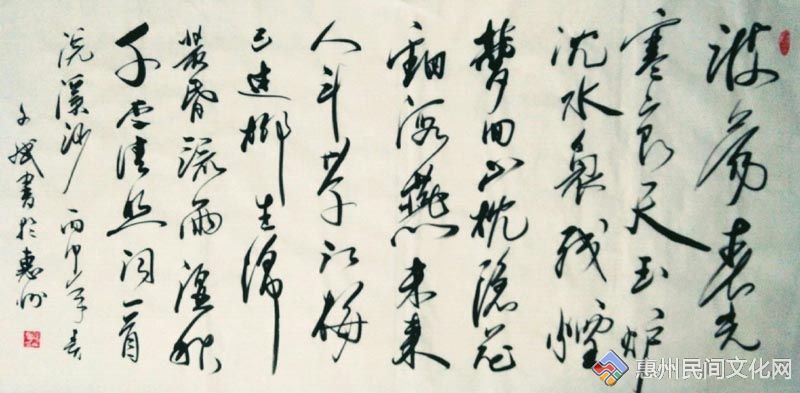 淡蕩春光
寒食天玉炉
沈水裊残煙
夢回山枕隐花
鈿海燕未来
人斗草江梅
已过柳生绵
黄昏疏雨湿秋
千李清照词一首
浣溪沙 丙申年春
斌書於惠州
惠州民间文化网